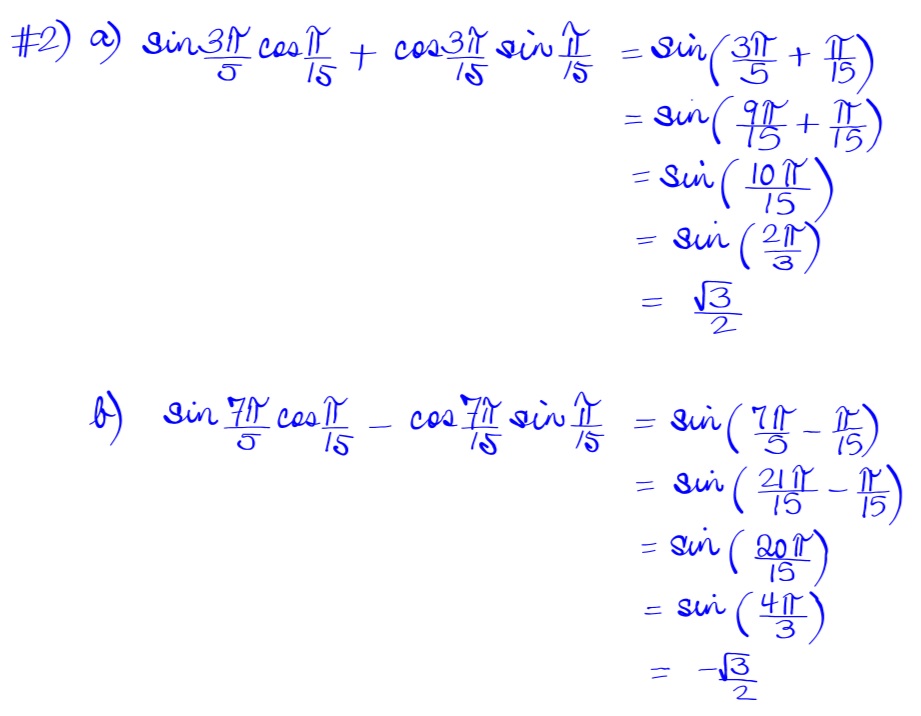 #2) a) sin 3π/5 cos π/15 + cos 3π/15 sin π/15 = sin(3π/5 + π/15)
= sin(9π/15 + π/15)
= sin(10π/15)
= sin(2π/3)
= √3/2
b) sin 7π/5 cos π/15 - cos 7π/15 sin π/15 = sin(7π/5 - π/15)
= sin(21π/15 - π/15)
= sin(20π/15)
= sin(4π/3)
= -√3/2